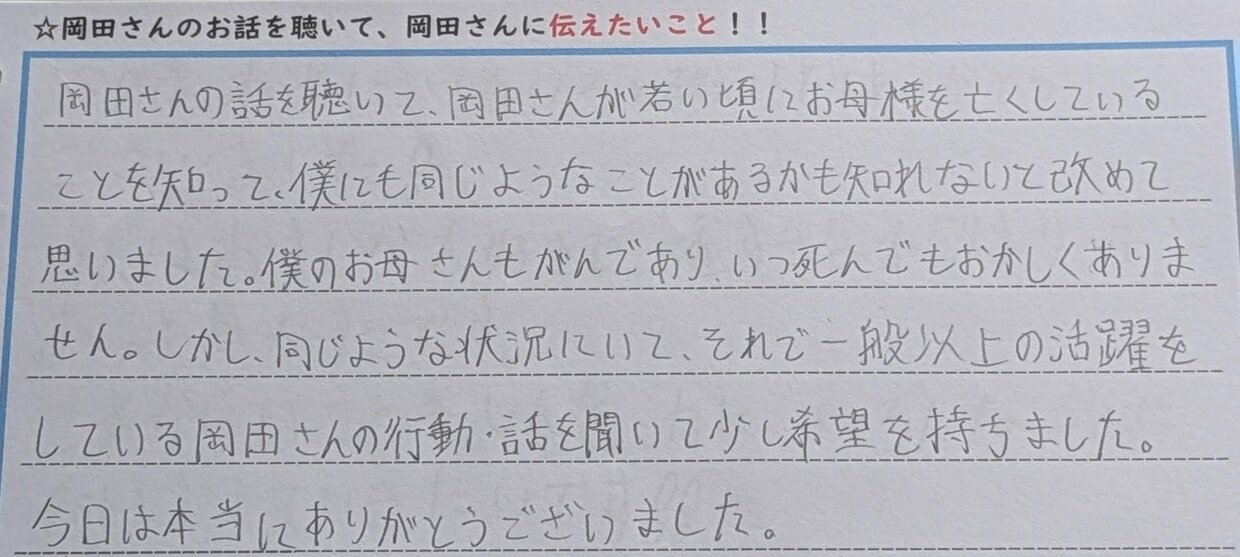 ☆岡田さんのお話を聴いて、岡田さんに伝えたいこと！！
岡田さんの話を聴いて、岡田さんが若い頃にお母様を亡くしている
ことを知って、僕にも同じようなことがあるかも知れないと改めて
思いました。僕のお母さんもがんであり、いつ死んでもおかしくありま
せん。しかし、同じような状況にいて、それで一般以上の活躍を
している岡田さんの行動・話を聞いて少し希望を持ちました。
今日は本当にありがとうございました。